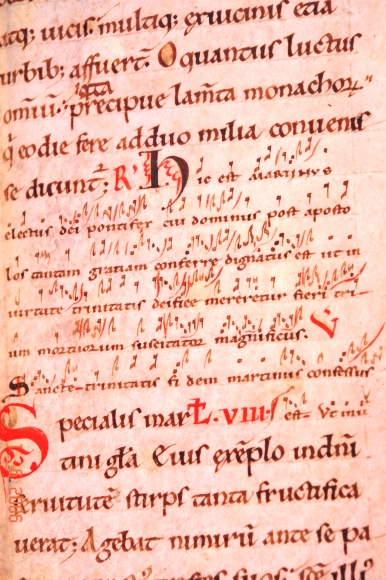 atq; uicis. multiq; exuicinis etiā
urbib; affuert̄. O quantus luctus
omniū. precipue lam̄ta monachoꝝ.
q̄ eo die fere ad duo milia conuenis
se dicunt̄; R' Hic est MARTINUS
electus dei pontifex cui dominus post aposto
los tantam gratiam conferre dignatus est ut in
uirtute trinitatis deifice mereretur fieri tri
um mortuorum suscitator magnificus. V
Sancte trinitatis fidem martinus confessus
est. Ut in ui
Specialis mar Ł. VIII.
tini gl̄a. Eius exēplo in diuiū
seruitute stirps tanta fructifica
uerat; Agebat nimirū ante se pa